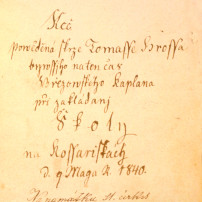 Řeč
powěděna skrze Tomasse Hrossa
bywssiho na ten čas
Brezowského kaplana
při zakládanj
Školy
na Kossariskách
d. 9 Maga R. 1840.